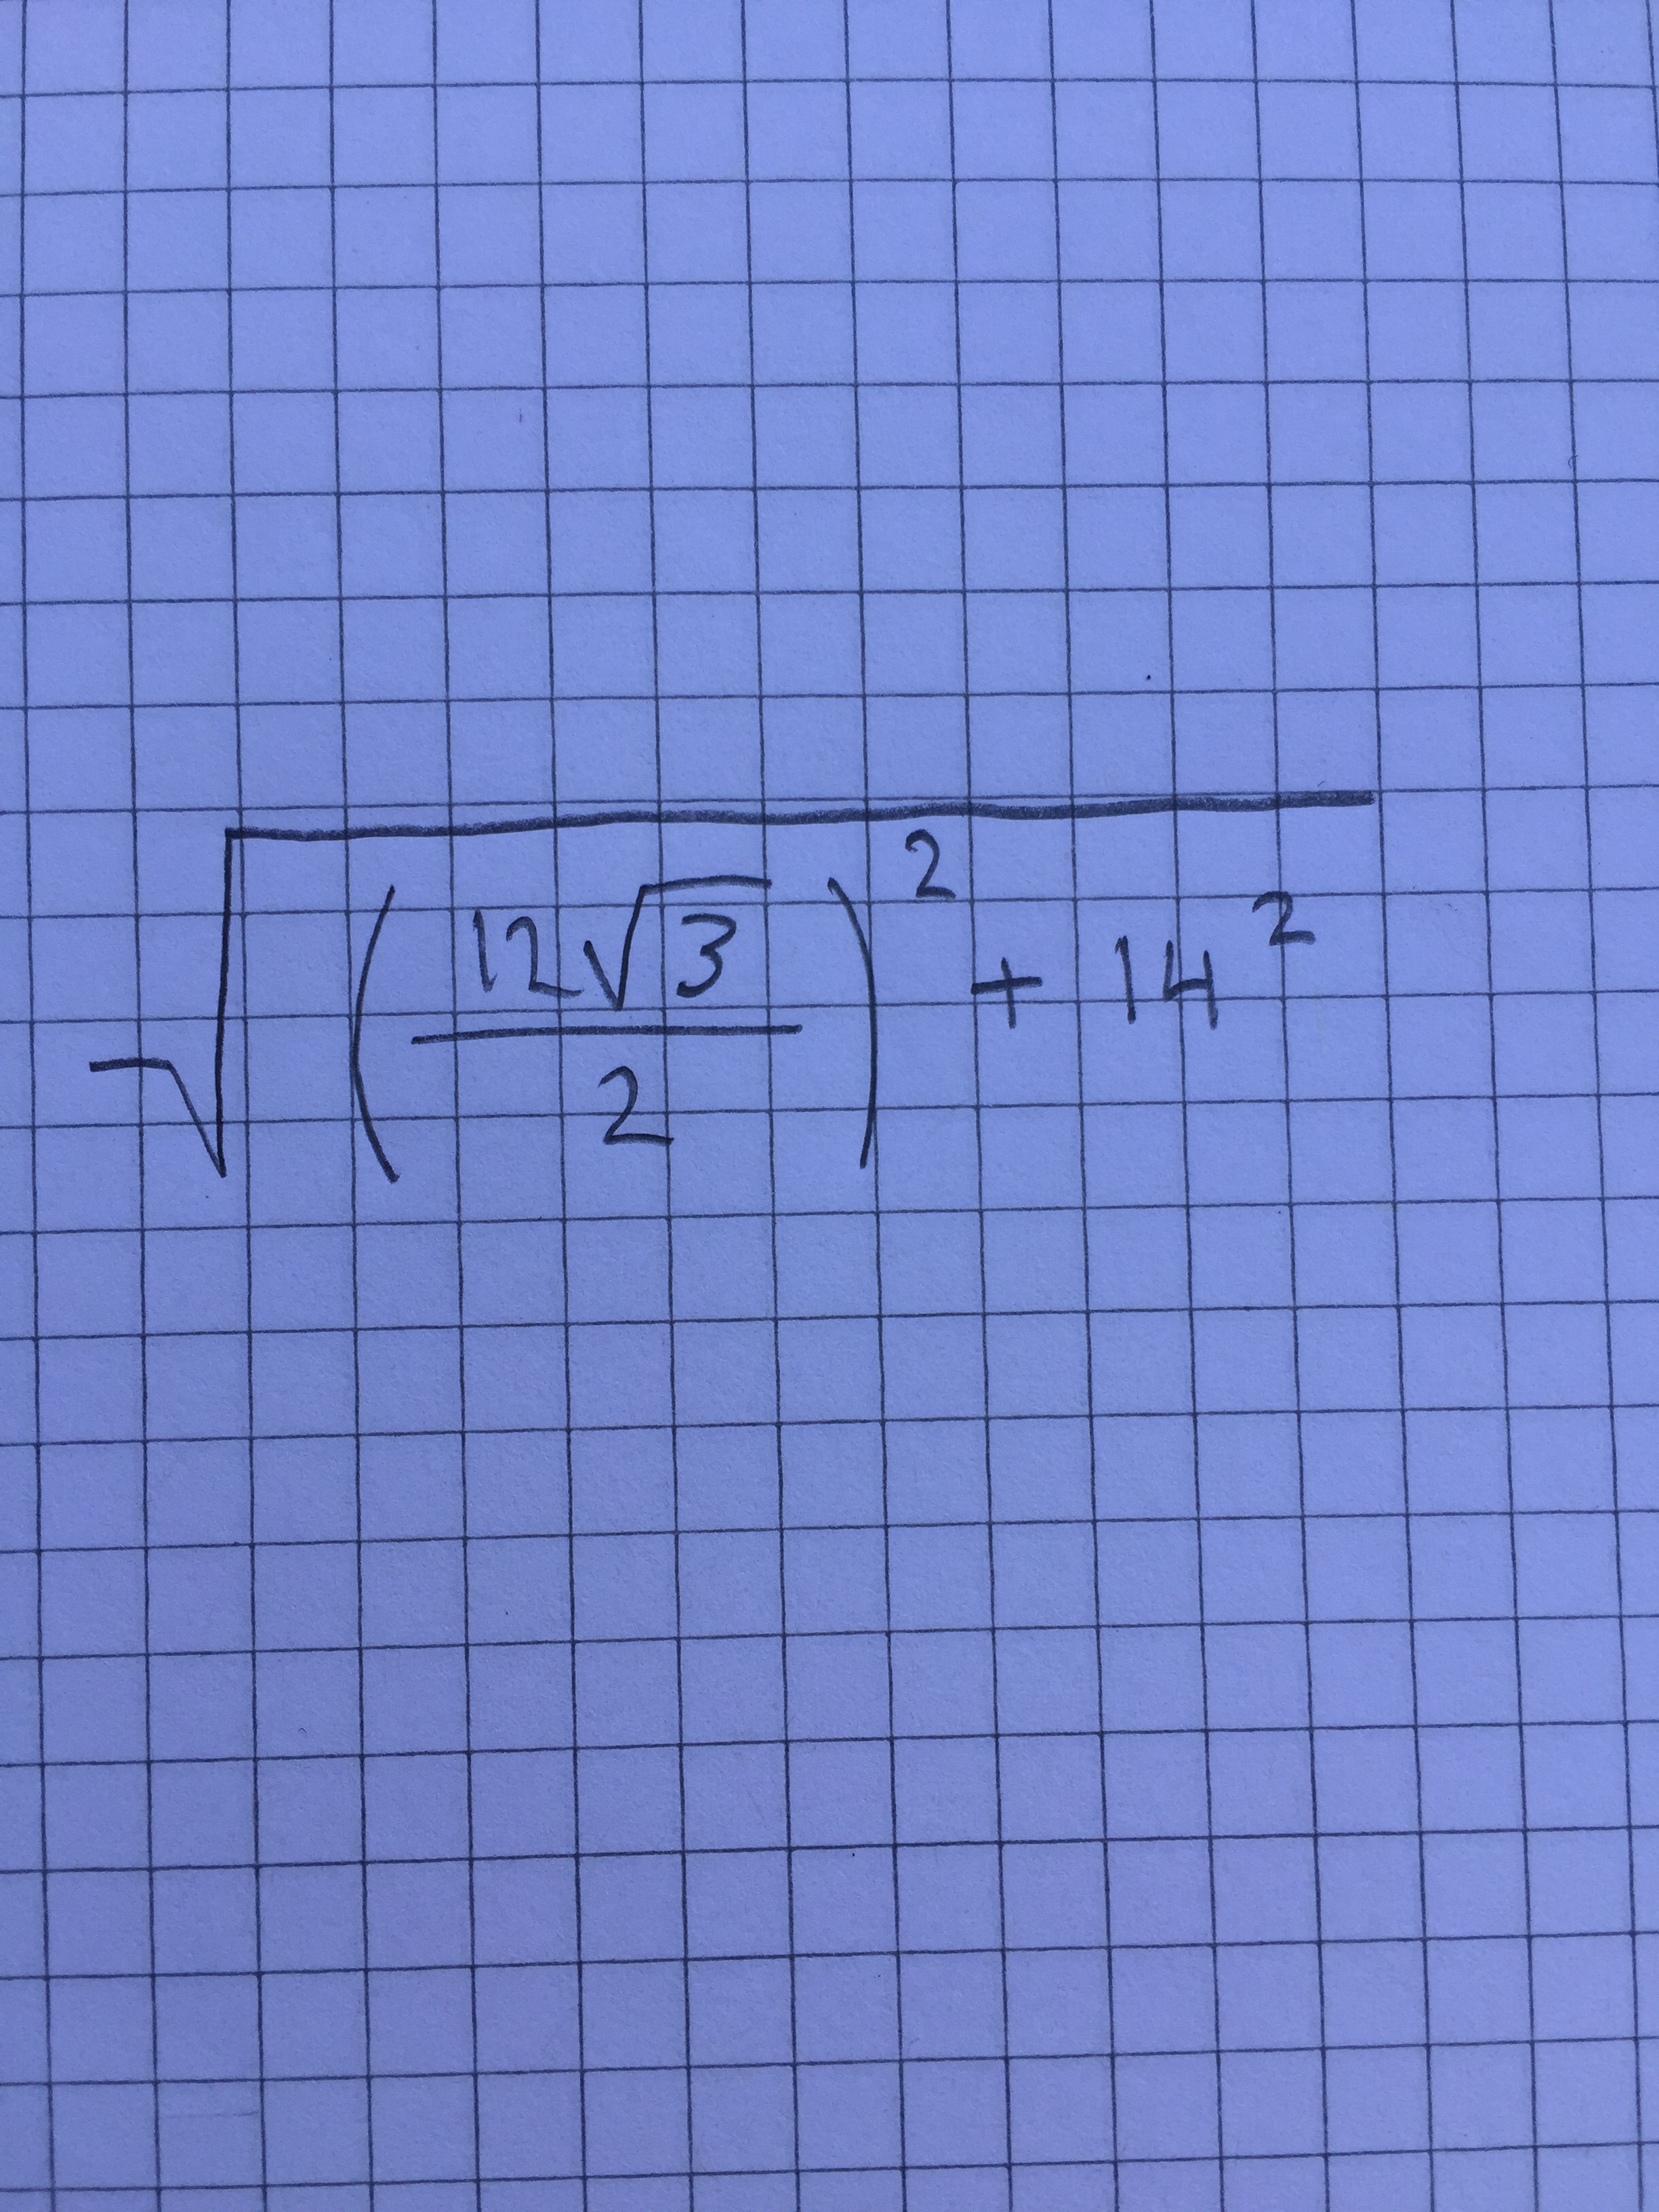 \sqrt{\left(\frac{12\sqrt{3}}{2}\right)^2 + 14^2}